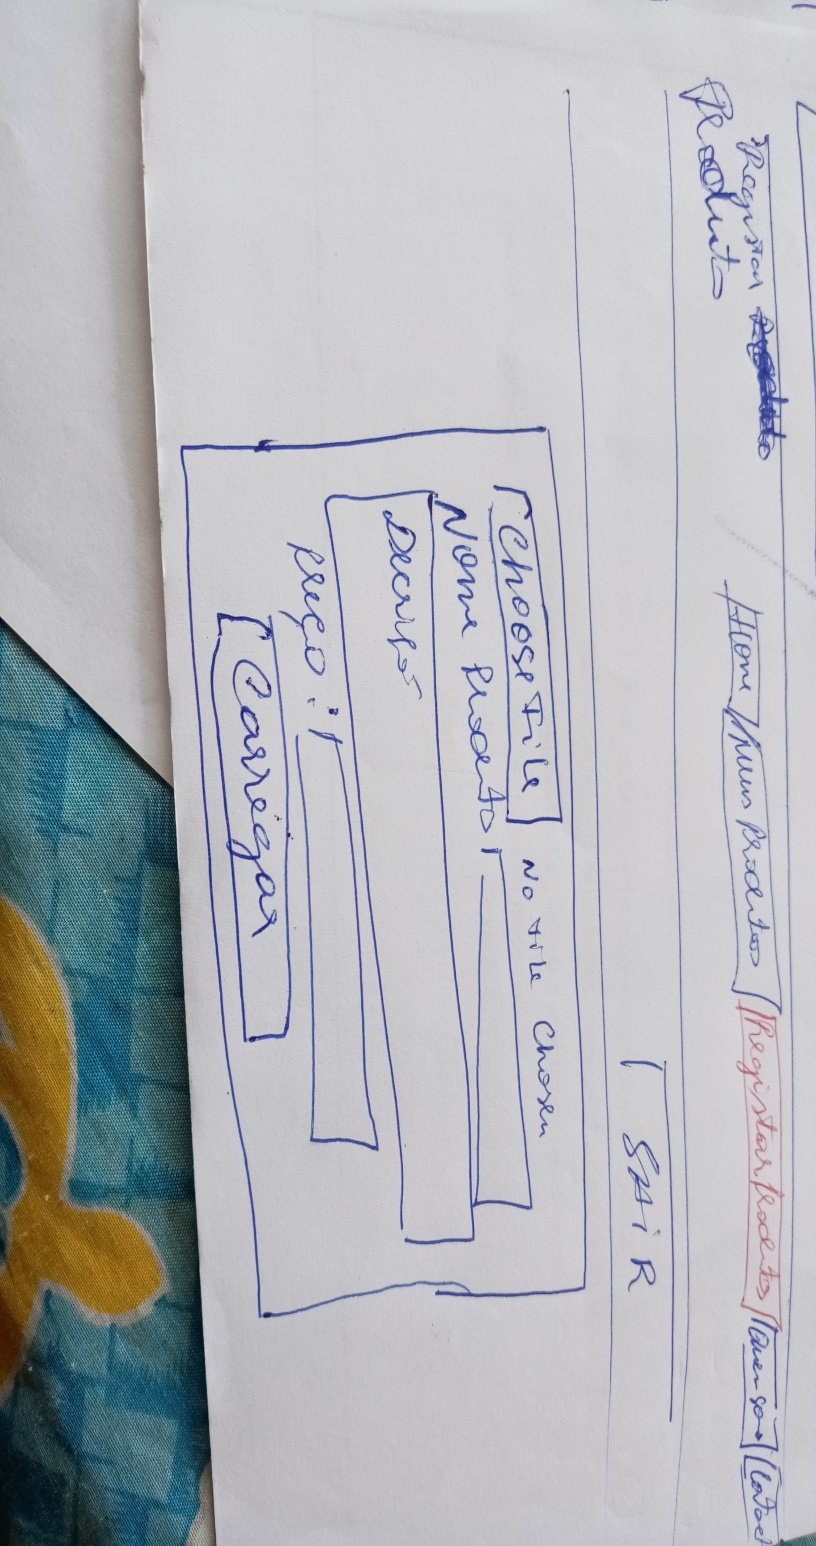 Registar
Produto
Home
Meus Produtos
Registar Produtos
Quem sou
SAIR
Choose File No file chosen
Nome Produto
Preço :
Carregar